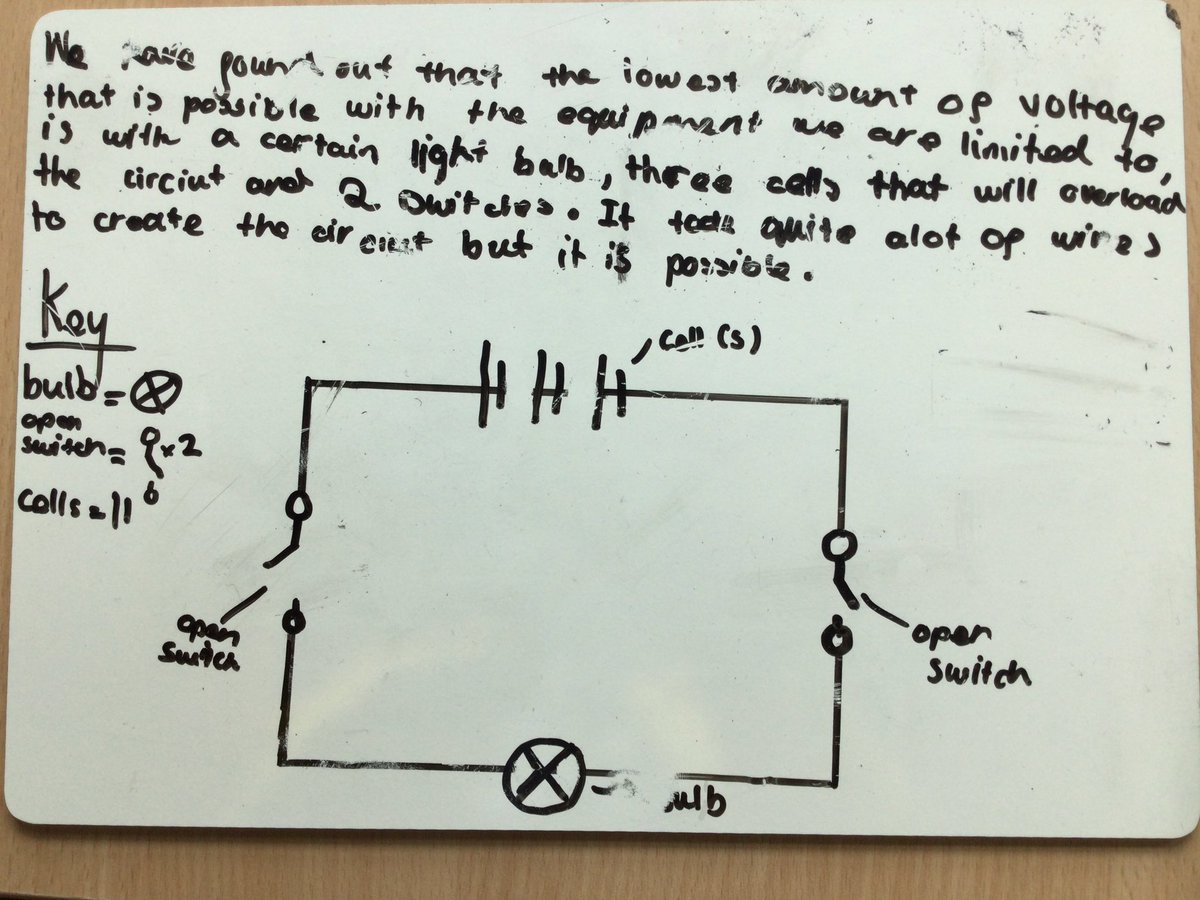 We have found out that the lowest amount of voltage
that is possible with the equipment we are limited to,
is with a certain light bulb, three cells that will overload
the circiut and 2 switches. It took quite alot of wires
to create the circuit but it is possible.
Key
bulb =
open
switch = x2
cells =
cell (s)
open
switch
open
switch
ulb